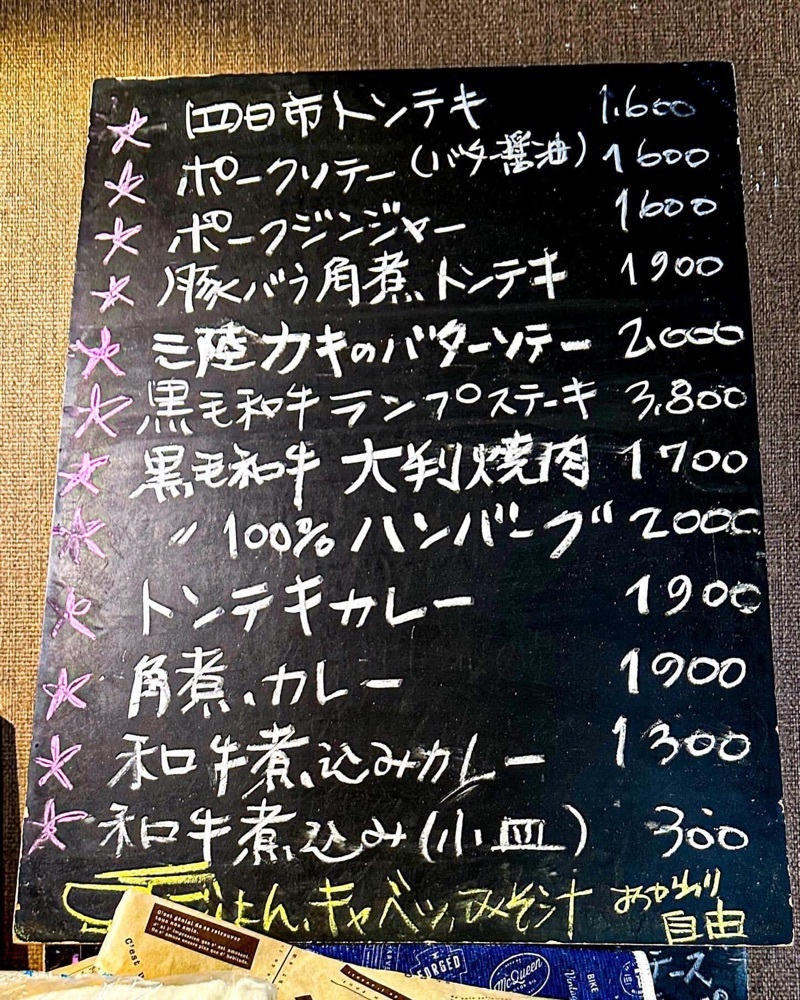 四日市トンテキ 1.600
ポークソテー(バター醤油) 1600
ポークジンジャー 1600
豚バラ角煮トンテキ 1900
三陸カキのバターソテー 2.000
黒毛和牛ランプステーキ 3.800
黒毛和牛 大判焼肉 1700
〃 100%ハンバーグ 2000
トンテキカレー 1900
角煮カレー 1900
和牛煮込みカレー 1300
和牛煮込み(小皿) 300
ごはん、キャベツ、みそ汁 おかわり自由
C'est génial de se retrouver
tous les amis.
C'est
FORGED
McQueen
BIKE